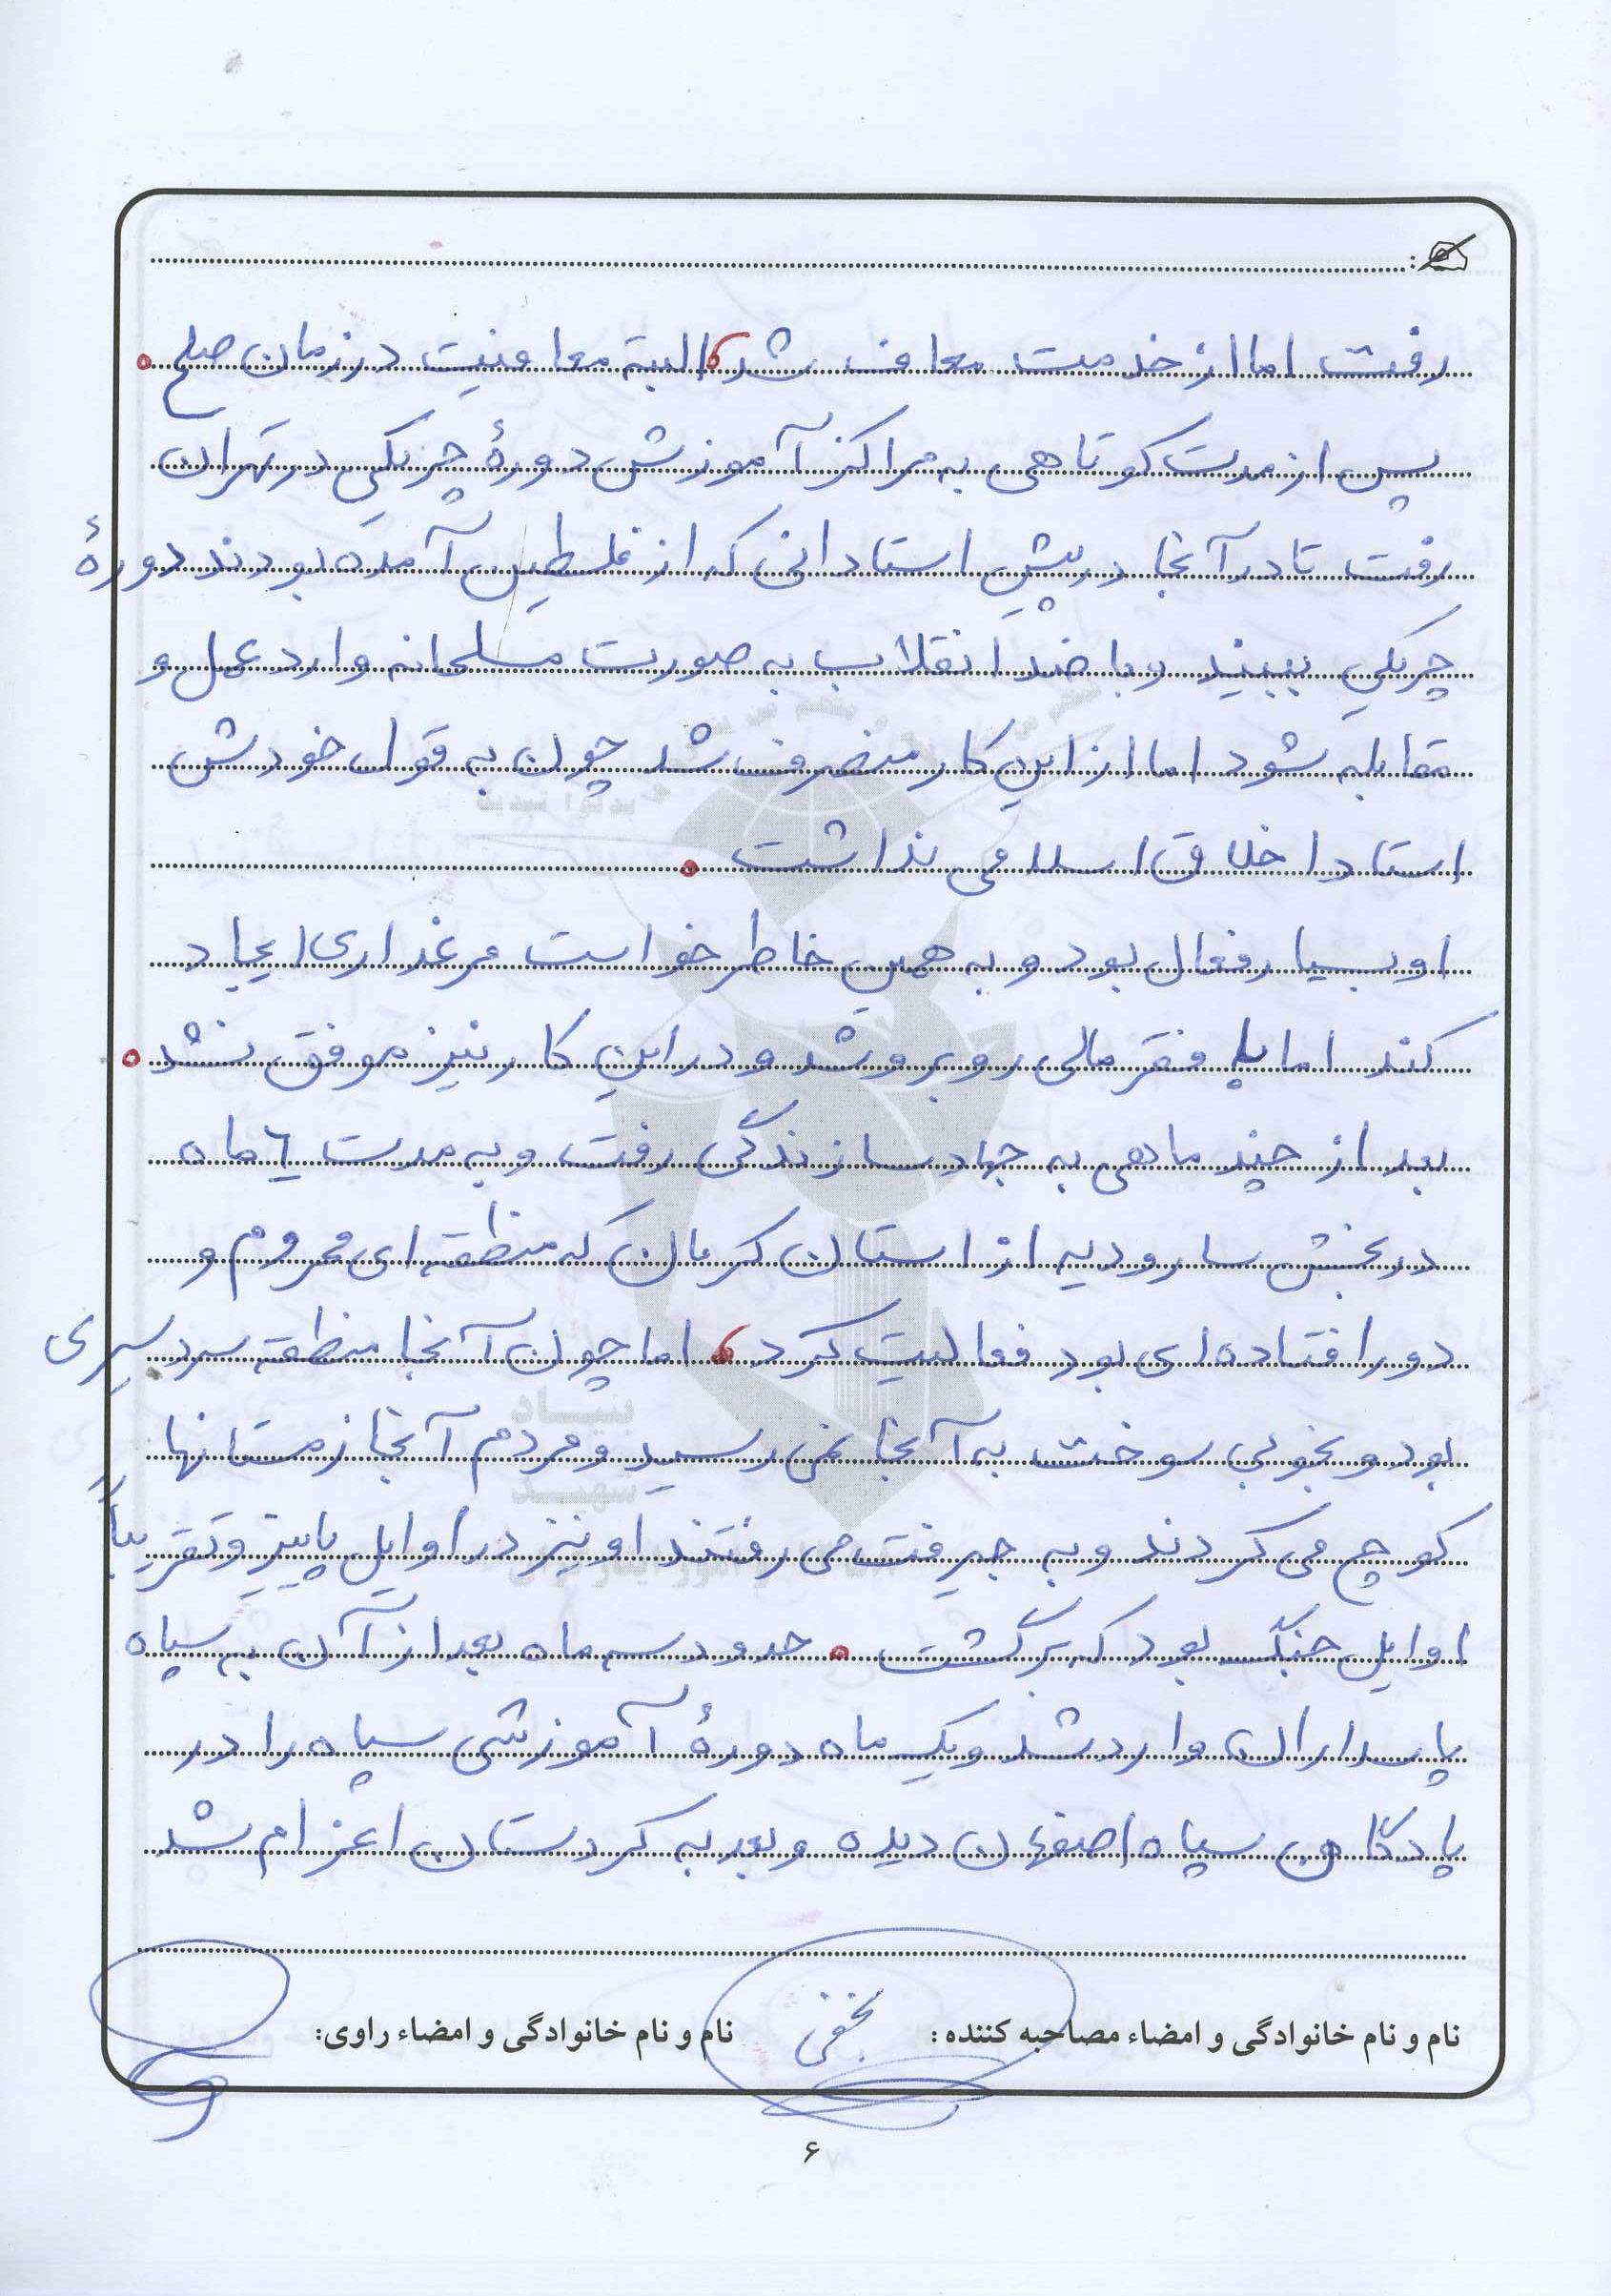 رفت اما از خدمت معاف شد، البته معافیت در زمان صلح.
پس از مدت کوتاهی به مراکز آموزش دورهٔ چریکی در تهران
رفت تا در آنجا در پیش استادانی که از فلسطین آمده بودند دورهٔ
چریکی ببیند و با ضد انقلاب به صورت مسلحانه وارد عمل و
مقابله شود اما از این کار منصرف شد چون به قول خودش
استاد اخلاق اسلامی نداشت.
او بسیار فعال بود و به همین خاطر خواست مرغداری ایجاد
کند اما با فقر مالی روبرو شد و در این کار نیز موفق نشد.
بعد از چند ماهی به جهاد سازندگی رفت و به مدت ٦ ماه
در بخش ساردوئیه از استان کرمان که منطقه ای محروم و
دور افتاده ای بود فعالیت کرد، اما چون آنجا منطقه سردسیری
بود و بخوبی سوخت به آنجا نمی رسید و مردم آنجا زمستانها
کوچ می کردند و به جیرفت می رفتند او نیز در اوایل پاییز و تقریباً
اوایل جنگ بود که برگشت. حدود سه ماه بعد از آن به سپاه
پاسداران وارد شد و یک ماه دورهٔ آموزشی سپاه را در
پادگان سپاه اصفهان دیده و بعد به کردستان اعزام شد
نام و نام خانوادگی و امضاء مصاحبه کننده: نجفی نام و نام خانوادگی و امضاء راوی:
۶